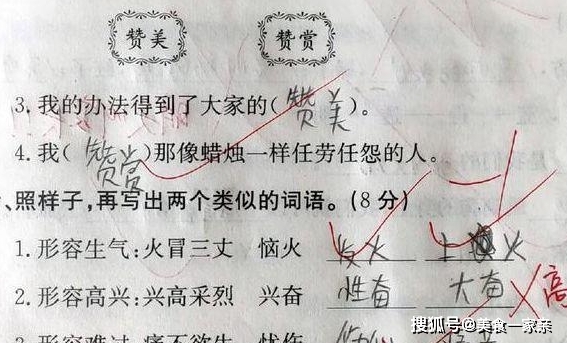 赞美 赞赏
3.我的办法得到了大家的(赞美)。
4.我(赞赏)那像蜡烛一样任劳任怨的人。
、照样子,再写出两个类似的词语。(8分)
1.形容生气:火冒三丈 恼火 发火 上火
2.形容高兴:兴高采烈 兴奋 性奋 大奋 高
3.形容难过:痛不欲生 忧伤
搜狐号@美食一家亲